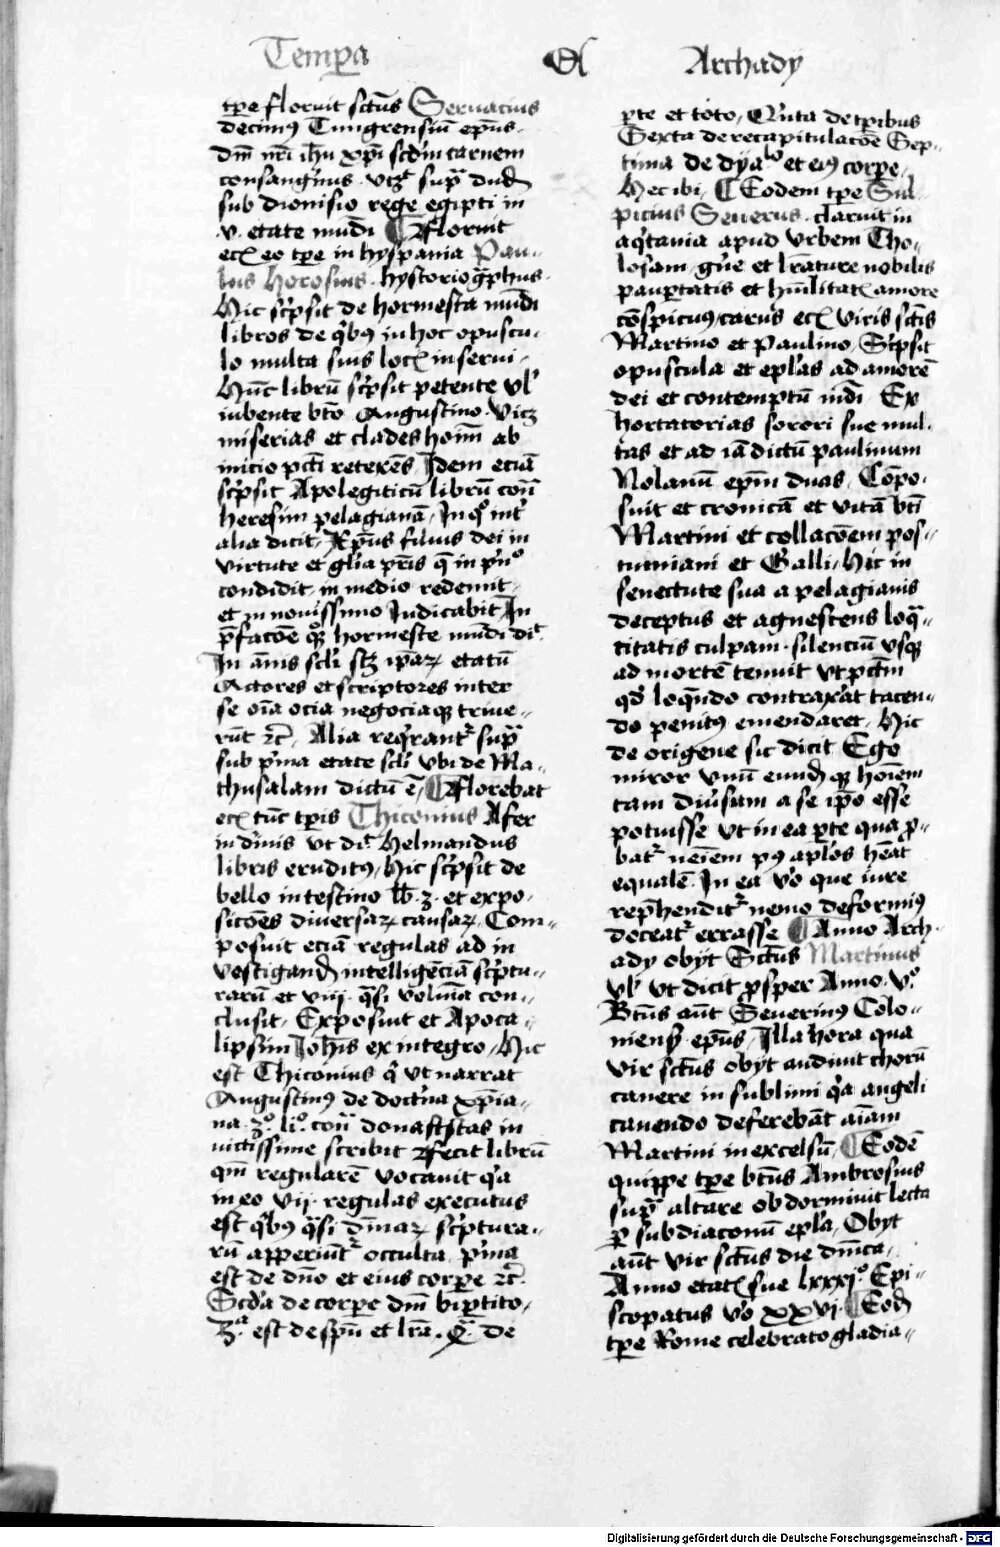 Temp̄a Ol Archady
tp̄e floruit sct̄us Seruacius
decimꝰ Tungrensiū ep̄us
dn̄i nr̄i ih̄u xp̄i scd̄m carnem
consangͥneus
sub dionisio rege egipti in
v. etate mundi ¶ Floruit
ecꝫ eo tp̄e in hyspania Pau-
lus Horosius hystoriogͣphus
Hic scͥpsit de hormesta mūdi
libros de qͥbꝰ in hoc opuscu-
lo multa suis locꝫ inserui
Hūc librū scͥpsit petente vl
iubente bt̄o Augustino
miserias et clades hoīm ab
inicio
scͥpsit Apolegiticū librū cont̄
heresim pelagianā In qͦ int̄
alia dicit Xp̄us filius dei in
virtute et gl̄ia pr̄is
condidit in medio redemit
et in nouissimo Iudicabit In
p̄facōe qͦꝫ hormeste mūdi dīc
In
Actores et scriptores inter
se oīa ocia negociaqꝫ triue-
rūt ꝛc̄ Alia reqͥrantᷣ supͣ
sub pͥma etate scl̄i vbi de Ma-
thusalam dictū ē ¶ Florebat
ecꝫ tūc tp̄is Thiconius Afer
in diͥnis vt dīc Helmandus
libris eruditꝰ Hic scͥpsit de
bello intestino et expo-
sicōes diuersaꝝ causaꝝ Com-
posuit eciā regulas ad in
vestigand̄ intelligēciā scͥptu-
rarū et viii con-
clusit Exposuit et Apoca-
lipsim Ioh̄is ex integro Hic
est Thiconius qͥ vt narrat
Augustinꝰ de doctͥna xp̄ia-
na 3º li.º contͣ donastistas in
uictissime scribit librū
qm̄ regularē vocauit qͥa
in eo vii regulas executus
est qͥbꝰ scͥptura-
rū apperiūtᷣ occulta pͥma
est de dn̄o et eius corp̄e ꝛc̄
Scd̄a de corp̄e dn̄i bip̄tito
3ᵃ est de sp̄u et lr̄a 4ᵃ de
p̄te et toto Quīta de tp̄ribus
Sexta de recapitulacōe Sep-
tima de dyaᵇᵒ et eiꝰ corp̄e
Hec ibi ¶ Eodem tp̄e Sul-
picius Seuerus claruit in
aqͥtania apud vrbem Tho-
losam gn̄e et lr̄ature nobilis
paup̄tatis et hūilitatꝫ amore
cōspicuus carus ecꝫ viris sct̄is
Martino et Paulino Scͥpsit
opuscula et ep̄las ad amorē
dei et contemptū mdī Ex
hortatorias sorori sue mul-
tas et ad iā dictū paulinum
Nolanū ep̄m duas Cōpo-
suit et cronicā et vitā bt̄i
Martini et collacōem pos-
tumiani et Galli Hic in
senectute sua a pelagianis
deceptus et agnoscens loqͣ-
citatis culpam silenciū vsqꝫ
ad mortē tenuit vt pct̄m
qd̄ loqͣndo contraxͣat tacen-
do penitꝰ emendaret Hic
de origene sic dicit Ego
miror vnū eund̄ qꝫ hoīem
tam diūsum a se ip̄o esse
potuisse vt in ea p̄te qua p̄-
batᷣ neīem pꝰ apl̄os hēat
equalē In ea vͦo que iure
rep̄henditᷣ nemo deformiꝰ
doceatᷣ errasse ¶ Anno Arch-
ady obyt Sct̄us Martinus
vl̄ vt dicit p̄sper Anno vº
Bt̄us aūt Seuerinꝰ Colo-
niens̄ ep̄us Illa hora qua
vir sct̄us obyt audiuit chorū
canere in sublimi qͥa angeli
canendo deferebāt aīam
Martini in excelsū ¶ Eodē
quippe tp̄e bt̄us Ambrosius
supͣ altare obdormiuit lecta
p̄ subdiaconū ep̄la Obyt
aūt vir sct̄us die dn̄ica
Anno etatꝫ sue lxxxiº Epi-
scopatus vͦo xxvi ¶ Eod̄
tp̄e Rome celebrato gladia-
Digitalisierung gefördert durch die Deutsche Forschungsgemeinschaft - DFG